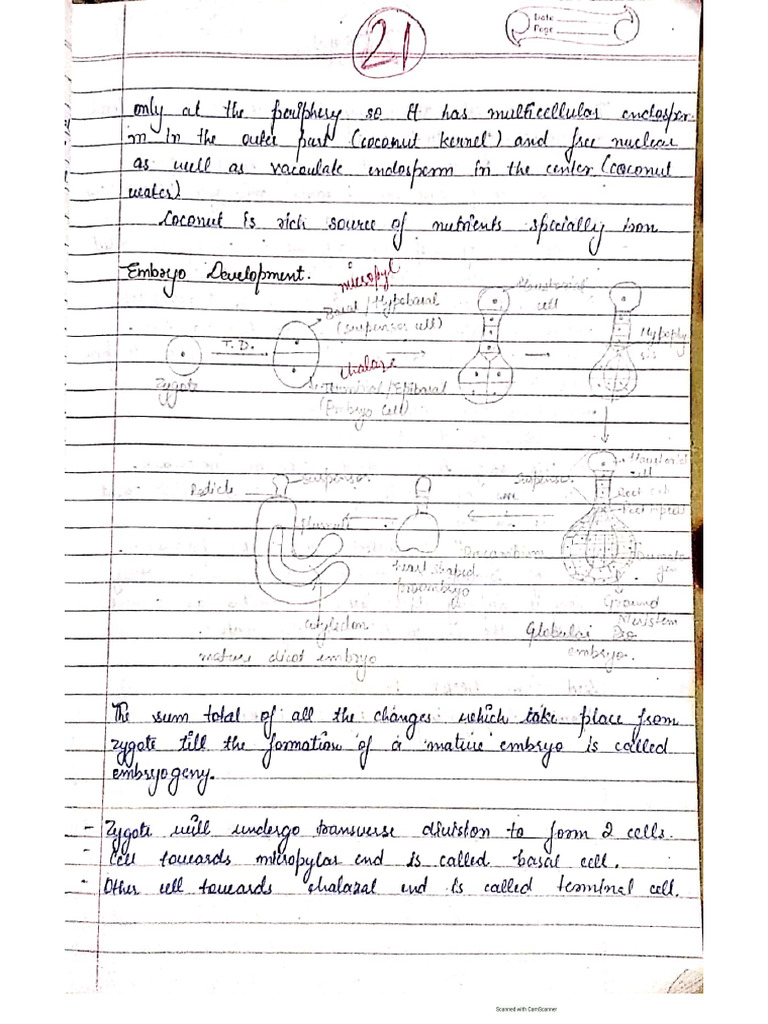 Date
Page
21
only at the periphery so it has multicellular endosper-
m in the outer part (coconut kernel) and free nuclear
as well as vacoulate endosperm in the center (coconut
water).
Coconut is rich source of nutrients specially iron
Embryo Development.
micropyl
Basal/Hypobasal
(suspensor cell)
T.D.
Zygote
chalaze
Terminal/Epibasal
(Embryo cell)
Haustorial
cell
Hypophy
sis
Haustorial
cell
Root cap
Suspensor
Radicle
Suspensor
Plumule
heart shaped
proembryo
cotyledon
mature dicot embryo
Procambium
Dermato
gen
Ground
Meristem
Globular Pro
embryo.
The sum total of all the changes which take place from
zygote till the formation of a mature embryo is called
embryogeny.
- Zygote will undergo transverse division to form 2 cells.
- Cell towards micropylar end is called basal cell.
- Other cell towards chalazal end is called terminal cell.
Scanned with CamScanner